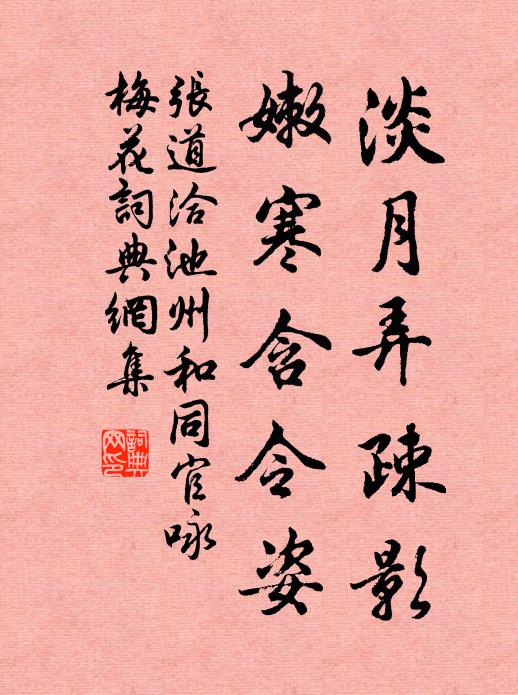 淡月弄疎影
嫩寒含令姿
張道洽池州和同官咏
梅花詞典網集
詞典網印